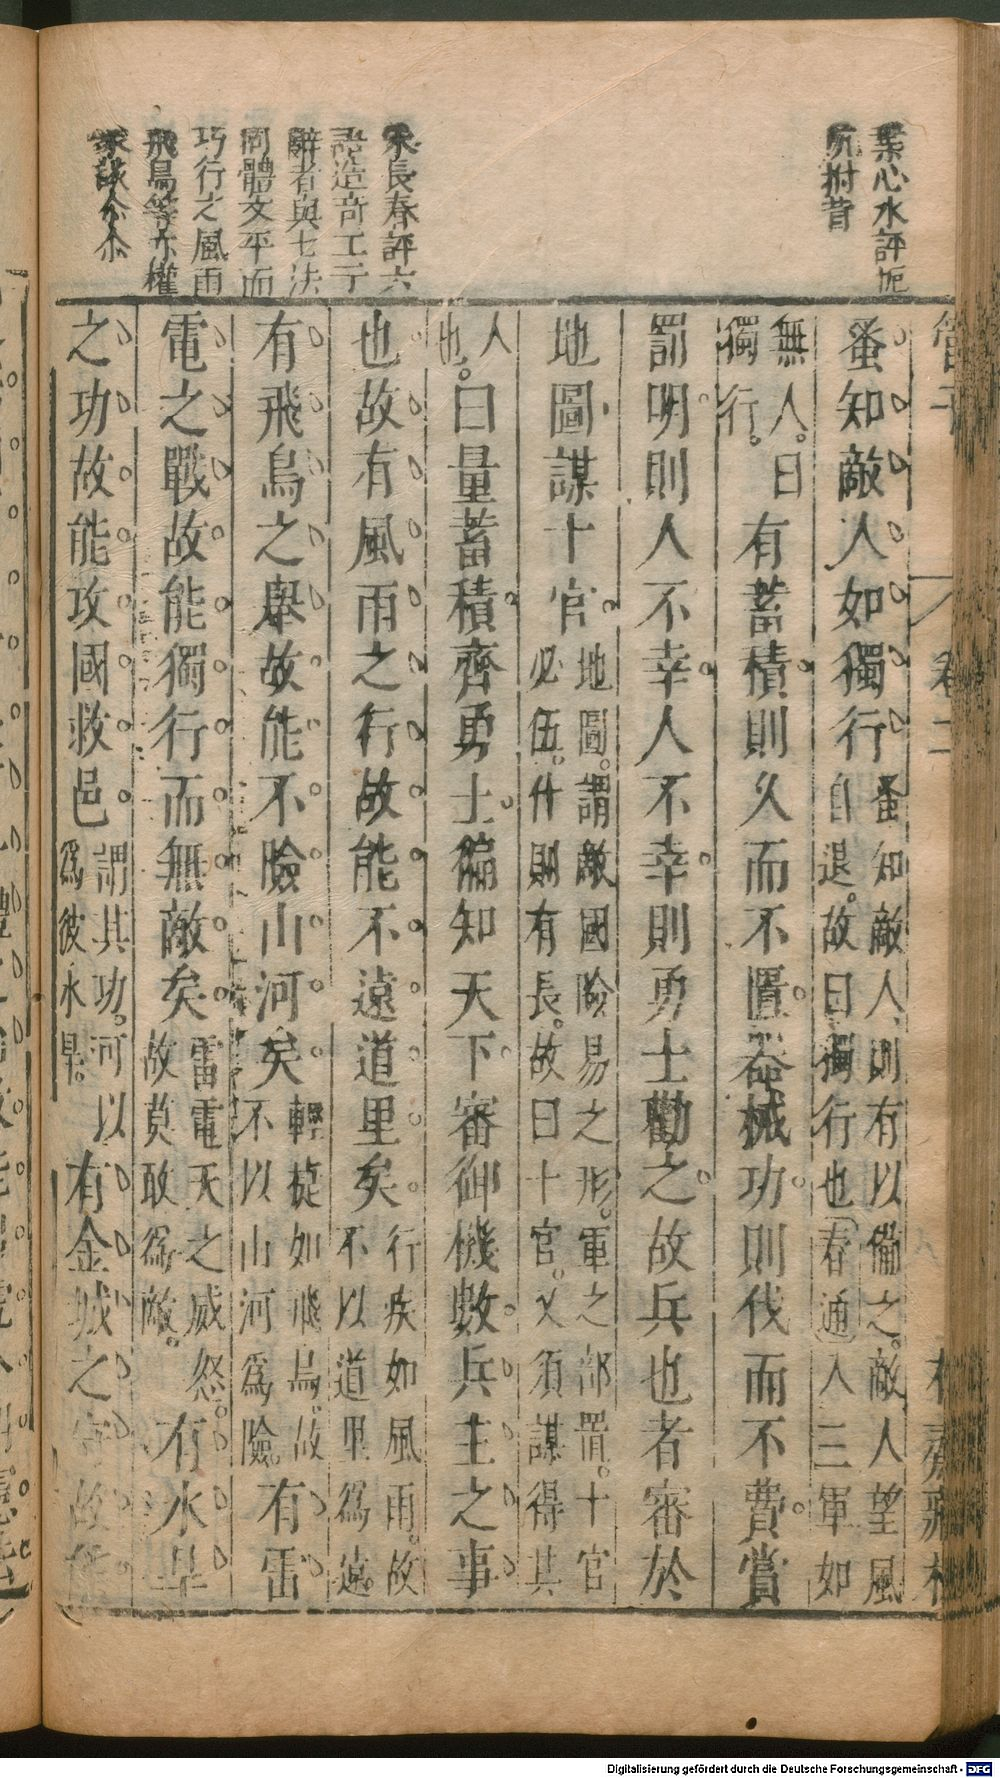 葉心水評
拊昔
朱長春評六
語造奇工于
辭者與七法
同體文平而
巧行之風雨
飛鳥等亦權
管子
卷二
蚤知敵人如獨行蚤知敵人則有以備之。敵人望風
自退。故曰獨行也春通入三軍如
無人。曰
獨行。有蓄積則久而不匱。器械功則伐而不費。賞
罰明則人不幸人不幸則勇士勸之故兵也者審於
地圖謀十官地圖。謂敵國險易之形。軍之部置。十官
必伍。什則有長。故曰十官。又須謀得其
人
也。曰量蓄積齊勇士徧知天下審御機數兵主之事
也故有風雨之行故能不遠道里矣行疾如風雨。故
不以道里爲遠。
有飛鳥之舉故能不險山河矣輕捷如飛鳥。故
不以山河爲險有雷
電之戰故能獨行而無敵矣雷電天之威怒。
故莫敢爲敵。有水旱
之功故能攻國救邑謂其功。可以
爲彼水旱。有金城之守故能
Digitalisierung gefördert durch die Deutsche Forschungsgemeinschaft - DFG